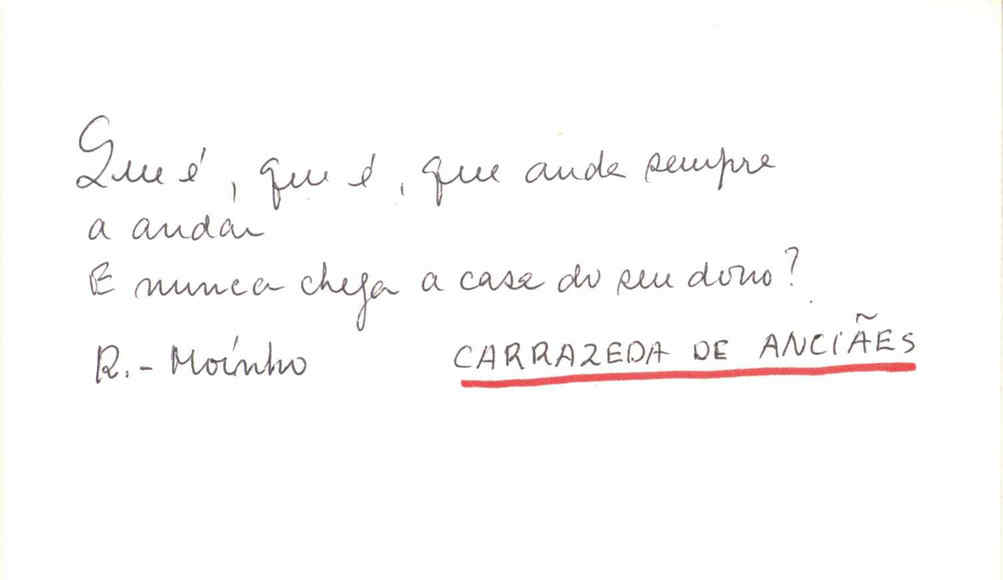 Que é, que é, que anda sempre
a andar
E nunca chega a casa do seu dono?
R.- Moínho CARRAZEDA DE ANCIÃES